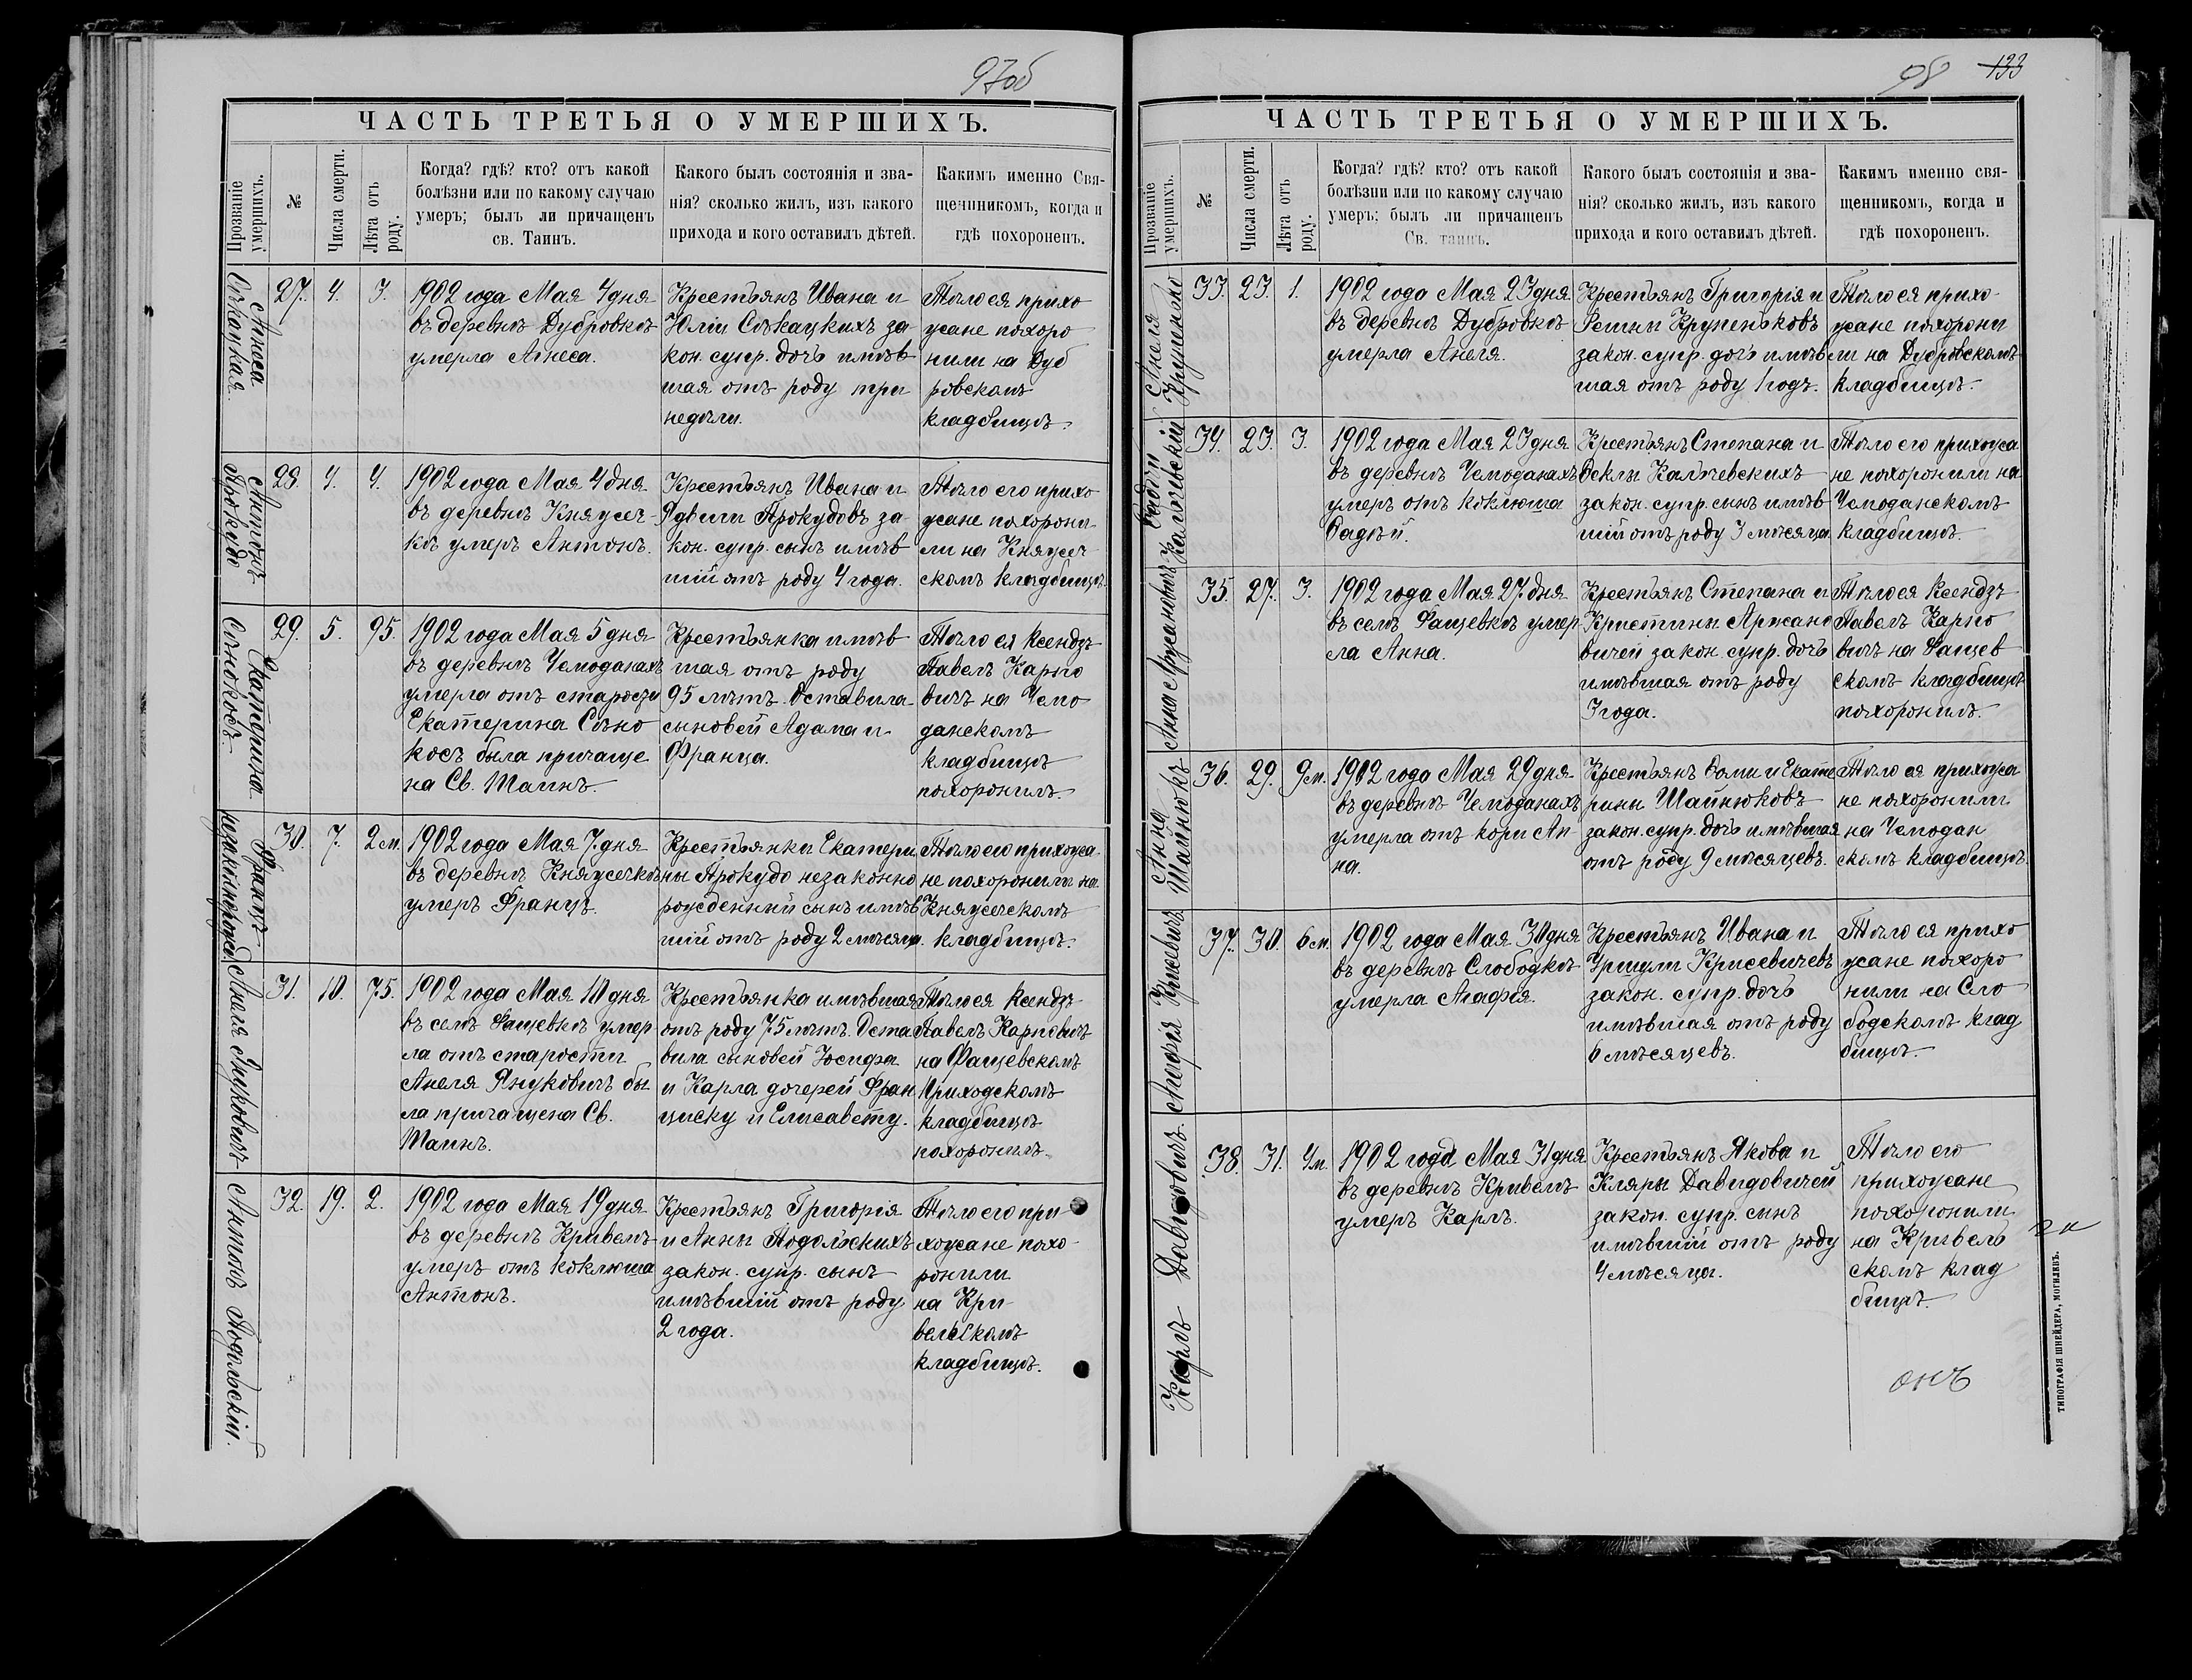 97об
ЧАСТЬ ТРЕТЬЯ О УМЕРШИХЪ.
Прозваніе умершихъ.
№
Числа смерти.
Лѣта отъ роду.
Когда? гдѣ? кто? отъ какой
болѣзни или по какому случаю
умеръ; былъ ли причащенъ
св. Таинъ.
Какого былъ состоянія и зва-
нія? сколько жилъ, изъ какого
прихода и кого оставилъ дѣтей.
Какимъ именно Свя-
щенникомъ, когда и
гдѣ похороненъ.
Агнеса
27. 4. 3.
1902 года Мая 4 дня
въ деревнѣ Дубровкѣ
умерла Агнеса.
Крестьянъ Ивана и
Юліи Сѣкацкихъ за-
кон. супр. дочь имѣв
шая отъ роду три
недѣли.
Тѣло ея прихо
жане похоро
нили на Дуб
ровскомъ
кладбищѣ.
Антонъ
Прокудо
28. 4. 4.
1902 года Мая 4 дня
въ деревнѣ Княжеч-
кѣ умеръ Антонъ.
Крестьянъ Ивана и
Ядвиги Прокудовъ за-
кон. супр. сынъ имѣв
шій отъ роду 4 года.
Тѣло его прихо
жане похорони-
ли на Княжеч
скомъ кладбищѣ.
Екатерина
Сѣнокосъ.
29. 5. 95.
1902 года Мая 5 дня
въ деревнѣ Чемоданахъ
умерла отъ старости
Екатерина Сѣно
косъ была причаще
на Св. Таинъ.
Крестьянка имѣв
шая отъ роду
95 лѣтъ. Оставила
сыновей Адама и
Франца.
Тѣло ея Ксендзъ
Павелъ Карпо
вичъ на Чемо
данскомъ
кладбищѣ
похоронилъ.
Францъ
незаконнорожд.
30. 7. 2 м.
1902 года Мая 7 дня
въ деревнѣ Княжечкѣ
умеръ Францъ.
Крестьянки Екатери
ны Прокудо незаконно
рожденный сынъ имѣв
шій отъ роду 2 мѣсяца.
Тѣло его прихожа
не похоронили на
Княжечскомъ
кладбищѣ.
Анеля Януковичъ
31. 10. 75.
1902 года Мая 10 дня
въ селѣ Фащевкѣ умер
ла отъ старости
Анеля Януковичъ бы
ла причащена Св.
Таинъ.
Крестьянка имѣвшая
отъ роду 75 лѣтъ. Оста
вила сыновей Іосифа
и Карла дочерей Фран
циску и Елисавету.
Тѣло ея Ксендзъ
Павелъ Карповичъ
на Фащевскомъ
Приходскомъ
кладбищѣ
похоронилъ.
Антонъ Подольскій.
32. 19. 2.
1902 года Мая 19 дня
въ деревнѣ Кривелѣ
умеръ отъ коклюша
Антонъ.
Крестьянъ Григорія
и Анны Подольскихъ
закон. супр. сынъ
имѣвшій отъ роду
2 года.
Тѣло его при
хожане похо-
ронили
на Кри-
вельскомъ
кладбищѣ.
98 133
ЧАСТЬ ТРЕТЬЯ О УМЕРШИХЪ.
Прозваніе умершихъ.
№
Числа смерти.
Лѣта отъ роду.
Когда? гдѣ? кто? отъ какой
болѣзни или по какому случаю
умеръ: былъ ли причащенъ
Св. таинъ.
Какого былъ состоянія и зва-
нія? сколько жилъ, изъ какого
прихода и кого оставилъ дѣтей.
Какимъ именно свя-
щенникомъ, когда и
гдѣ похороненъ.
Анеля
Крупенько
33. 23. 1.
1902 года Мая 23 дня
въ деревнѣ Дубровкѣ
умерла Анеля.
Крестьянъ Григорія и
Регины Крупеньковъ
закон. супр. дочь имѣв
шая отъ роду 1 годъ.
Тѣло ея прихо-
жане похорони
ли на Дубровскомъ
кладбищѣ.
Фадѣй
34. 23. 3.
1902 года Мая 23 дня
въ деревнѣ Чемоданахъ
умеръ отъ коклюша
Фадѣй.
Крестьянъ Степана и
Феклы
закон. супр. сынъ имѣв
шій отъ роду 3 мѣсяца.
Тѣло его прихожа
не похоронили на
Чемоданскомъ
кладбищѣ.
Анна Аржановичъ
35. 27. 3.
1902 года Мая 27 дня
въ селѣ Фащевкѣ умер
ла Анна.
Крестьянъ Степана и
Кристины Аржано
вичей закон. супр. дочь
имѣвшая отъ роду
3 года.
Тѣло ея Ксендзъ
Павелъ Карпо
вичъ на Фащев
скомъ кладбищѣ
похоронилъ.
Анна
Шайнюкъ
36. 29. 9 м.
1902 года Мая 29 дня
въ деревнѣ Чемоданахъ
умерла отъ кори Ан-
на.
Крестьянъ Фомы и Екате
рины Шайнюковъ
закон. супр. дочь имѣвшая
отъ роду 9 мѣсяцевъ.
Тѣло ея прихожа
не похоронили
на Чемодан
скомъ кладбищѣ.
Агафія Крисевичъ
37. 30. 6 м.
1902 года Мая 30 дня
въ деревнѣ Слободкѣ
умерла Агафія.
Крестьянъ Ивана и
Уршули Крисевичевъ
закон. супр. дочь
имѣвшая отъ роду
6 мѣсяцевъ.
Тѣло ея прихо
жане похоро
нили на Сло
бодскомъ клад
бищѣ.
Карлъ Давидовичъ.
38. 31. 4 м.
1902 года Мая 31 дня
въ деревнѣ Кривелѣ
умеръ Карлъ.
Крестьянъ Якова и
Клары Давидовичей
закон. супр. сынъ
имѣвшій отъ роду
4 мѣсяца.
Тѣло его
прихожане
похоронили
на Кривель
скомъ клад
бищѣ.
ТИПОГРАФІЯ ШНЕЙДЕРА, МОГИЛЕВЪ.